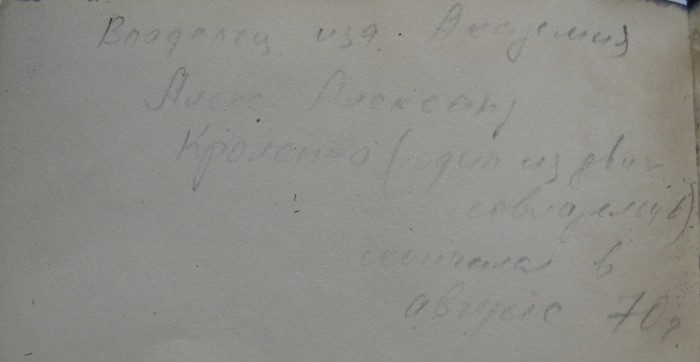 Владелец изд. Академия
Алекс Александ
Кроленко (один из двух
совладельцев)
скончался в
августе 70г